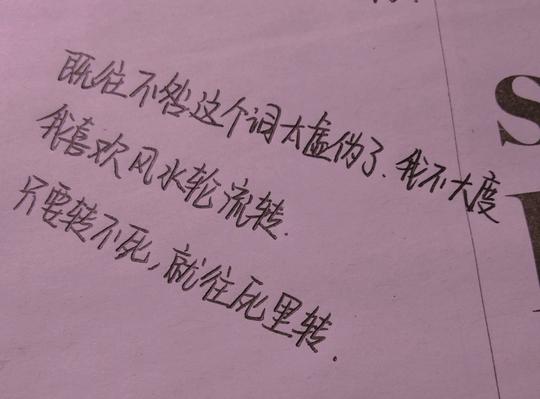 既往不咎这个词太虚伪了.我不大度
我喜欢风水轮流转.
只要转不死,就往死里转.
S